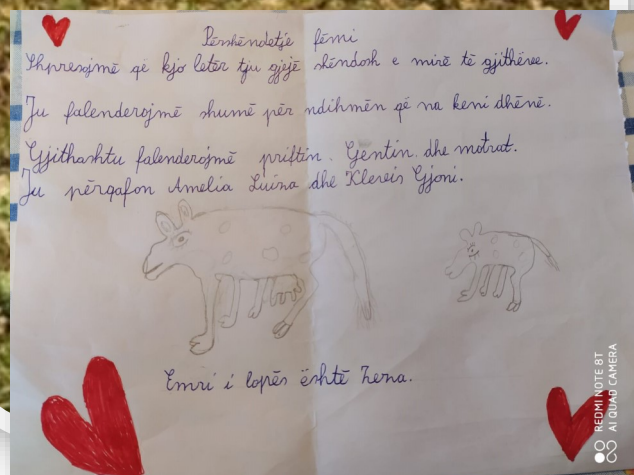 Përshëndetje fëmi
Shpresojmë që kjo letër tju gjejë shëndosh e mirë të gjithëve.
Ju falenderojmë shumë për ndihmën që na keni dhënë.
Gjithashtu falenderojmë priftin Gentin dhe motrat.
Ju përqafon Amelia Luina dhe Klevis Gjoni.
Emri i lopës është Zerna.
REDMI NOTE 8T
AI QUAD CAMERA